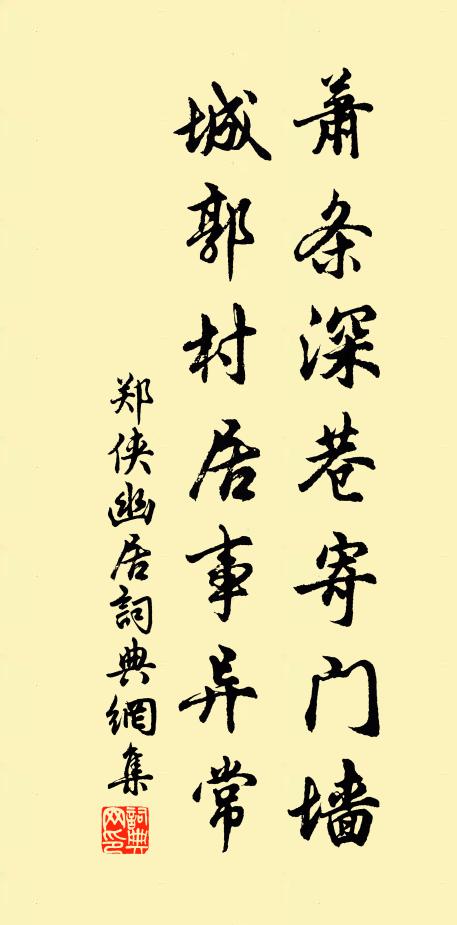 萧条深巷寄门墙
城郭村居事异常
郑侠幽居詞典網集
詞典网印